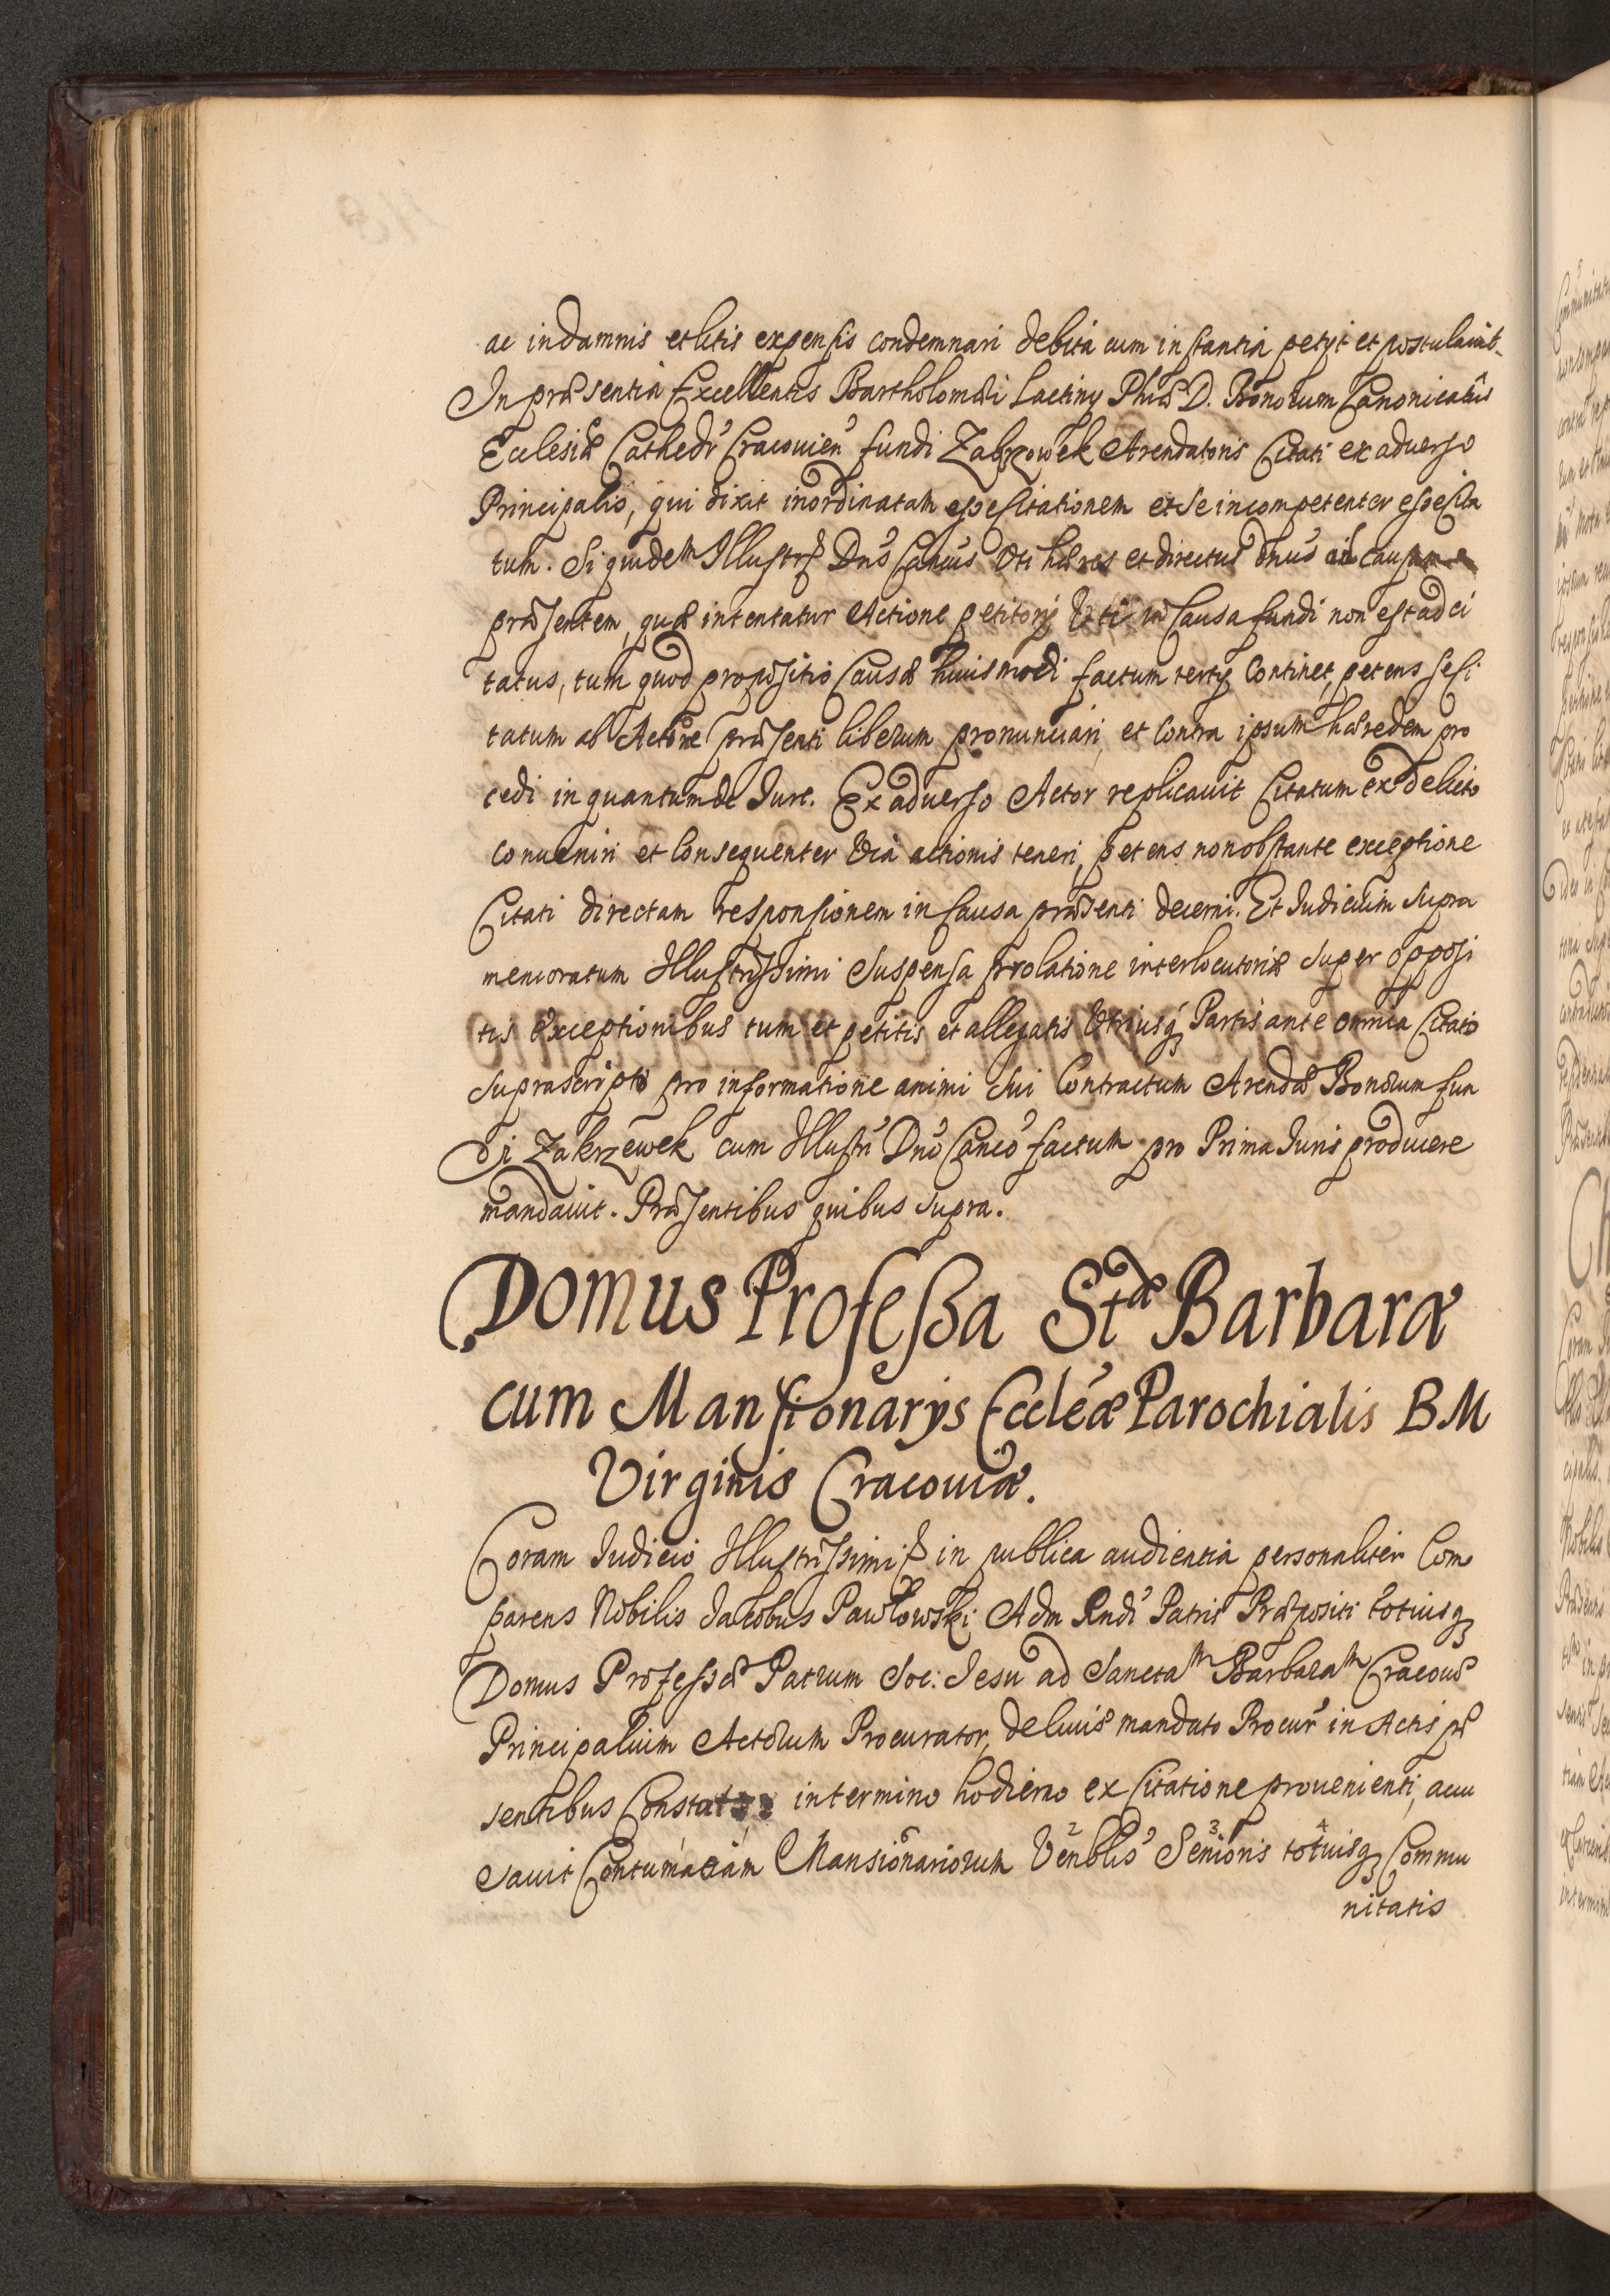 ac in damnis et litis expensis condemnari debita cum instantia petÿt et postulauit.
In præsentia Excellentis Bartholomæi Lactiny Phiæ D. Bonorum Canonicatûs
Ecclesiæ Cathedr Cracouien fundi Zabrzowek Arendatoris Citati ex aduerso
Principalis, qui dixit inordinatam esse Citationem et se incompetenter esse cita
tum. Siquidem Illustris Dnus Canus vti hæres et directus dnus ad causam
præsentem, quæ intentatur Actione petitorÿ Vti in Causa fundi non est adci
tatus, tum quod propositio Causæ huiusmodi factum tertÿ Continet, petens se Ci
tatum ab Actore præsenti liberum pronunciari, et Contra ipsum hæredem pro
cedi in quantum de Iure. Ex aduerso Actor replicauit Citatum ex delicto
conueniri et Consequenter Via actionis teneri, petens non obstante exceptione
Citati directam responsionem in Causa præsenti decerni. Et Iudicium Supra
memoratum Illustrissimi Suspensa prolatione interlocutoriæ Super opposi
tis exceptionibus tum et petitis et allegatis Vtriusq Partis ante omnia Citato
Suprascripto pro informatione animi Sui Contractum Arendæ Bonorum fun
di Zakrzewek cum Illustri Dno Canco factum pro Prima Iuris producere
mandauit. Præsentibus quibus Supra.
Domus Professa Stæ Barbaræ
cum Mansionarÿs Eccleæ Parochialis BM
Virginis Cracouiæ.
Coram Iudicio Illustrissimi in publica audientia personaliter Com
parens Nobilis Iacobus Pawłowski Adm Rndi Patris Præpositi totiusq
Domus Professæ Patrum Soc: Iesu ad Sanctam Barbaram Cracouiæ
Principalium Actorum Procurator, de cuius mandato Procur in Actis præ
sentibus Constat in termino hodierno ex Citatione proueniente, accu
sauit Contumaciam Mansionariorum Venblis Senioris totiusq Commu
nitatis